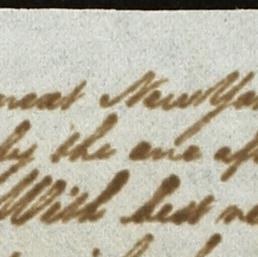 near New Yor
by the one af
With best re